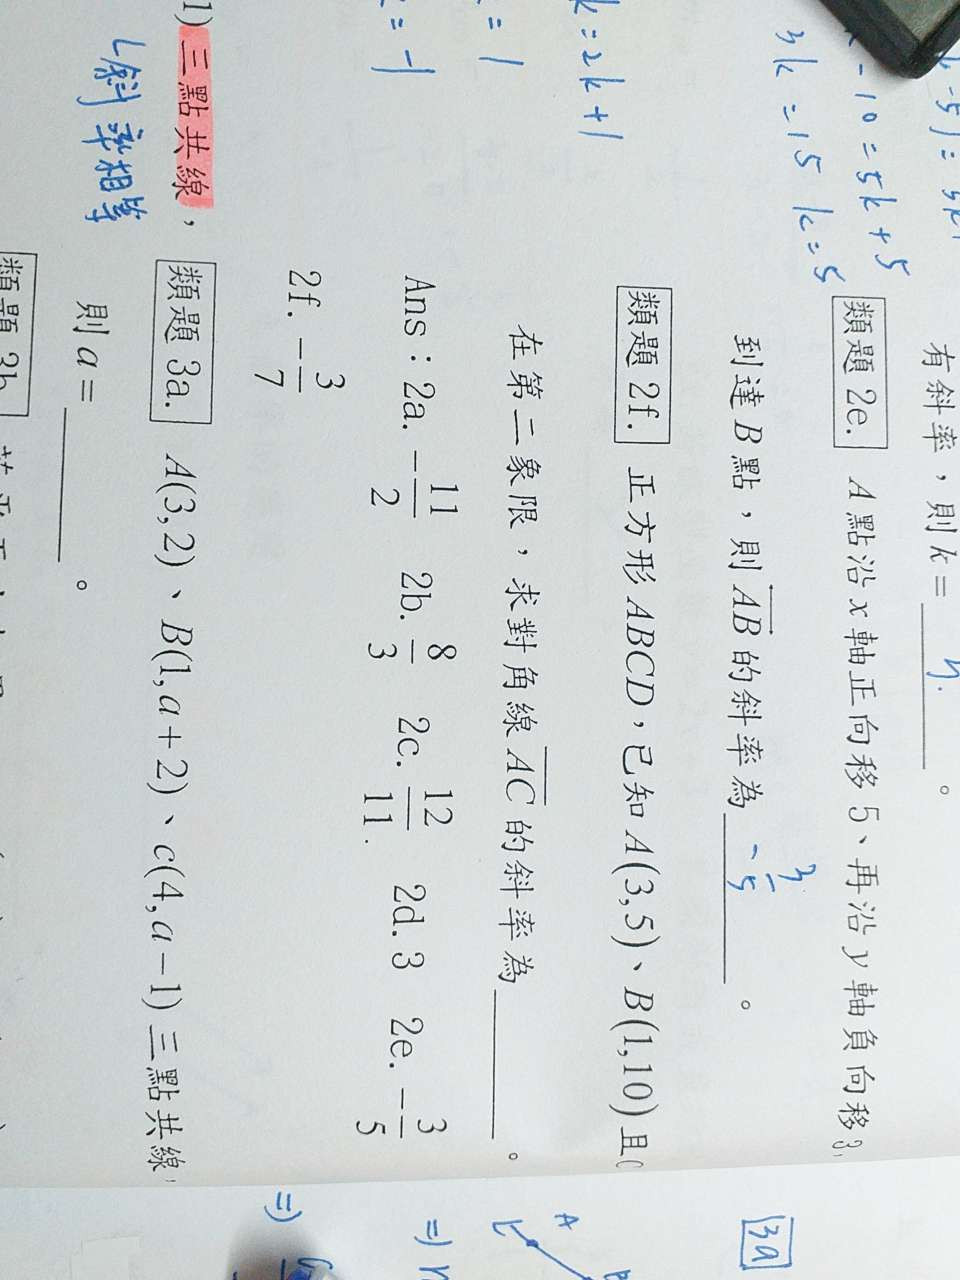 k-5)=5k+
-10=5k+5
3k=15 k=5
k=2k+1
=1
=-1
有斜率，則k=____。
類題 2e. A點沿x軸正向移5、再沿y軸負向移3，
到達B點，則AB的斜率為 -3/5 。
類題 2f. 正方形ABCD，已知A(3,5)、B(1,10)且C
在第二象限，求對角線AC的斜率為____。
Ans：2a. -11/2 2b. 8/3 2c. 12/11. 2d. 3 2e. -3/5
2f. -3/7
1)三點共線，
斜率相等
類題 3a. A(3,2)、B(1,a+2)、c(4,a-1)三點共線，
則a=____。
類題 3b.
3a
A
B
L
⇒)
⇒)